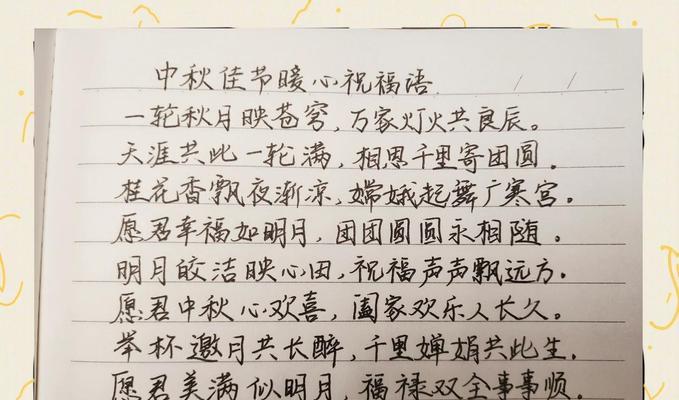 中秋佳节暖心祝福语
一轮秋月映苍穹,万家灯火共良辰。
天涯共此一轮满,相思千里寄团圆。
桂花香飘夜渐凉,嫦娥起舞广寒宫。
愿君幸福如明月,团团圆圆永相随。
明月皎洁映心田,祝福声声飘远方。
愿君中秋心欢喜,阖家欢乐人长久。
举杯邀月共长醉,千里婵娟共此生。
愿君美满似明月,福禄双全事事顺。